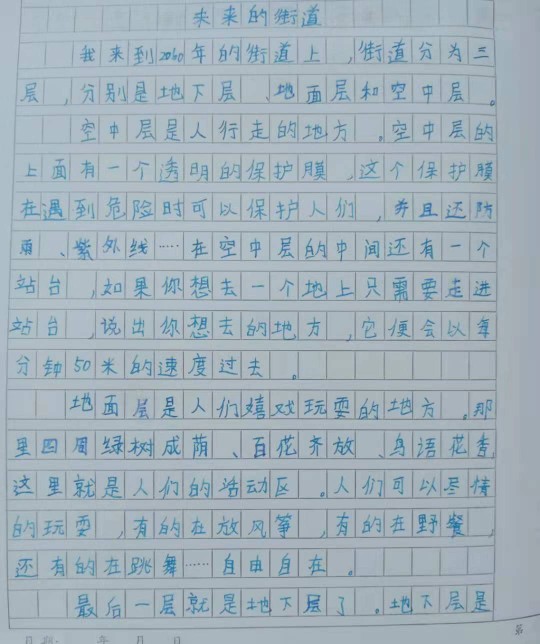 未来的街道
我来到2060年的街道上，街道分为三
层，分别是地下层、地面层和空中层。
空中层是人行走的地方。空中层的
上面有一个透明的保护膜，这个保护膜
在遇到危险时可以保护人们，并且还防
雨、紫外线……在空中层的中间还有一个
站台，如果你想去一个地上只需要走进
站台，说出你想去的地方，它便会以每
分钟50米的速度过去。
地面层是人们嬉戏玩耍的地方。那
里四周绿树成荫、百花齐放、鸟语花香，
这里就是人们的活动区。人们可以尽情
的玩耍，有的在放风筝，有的在野餐，
还有的在跳舞……自由自在。
最后一层就是地下层了。地下层是
日期： 年 月 日 第